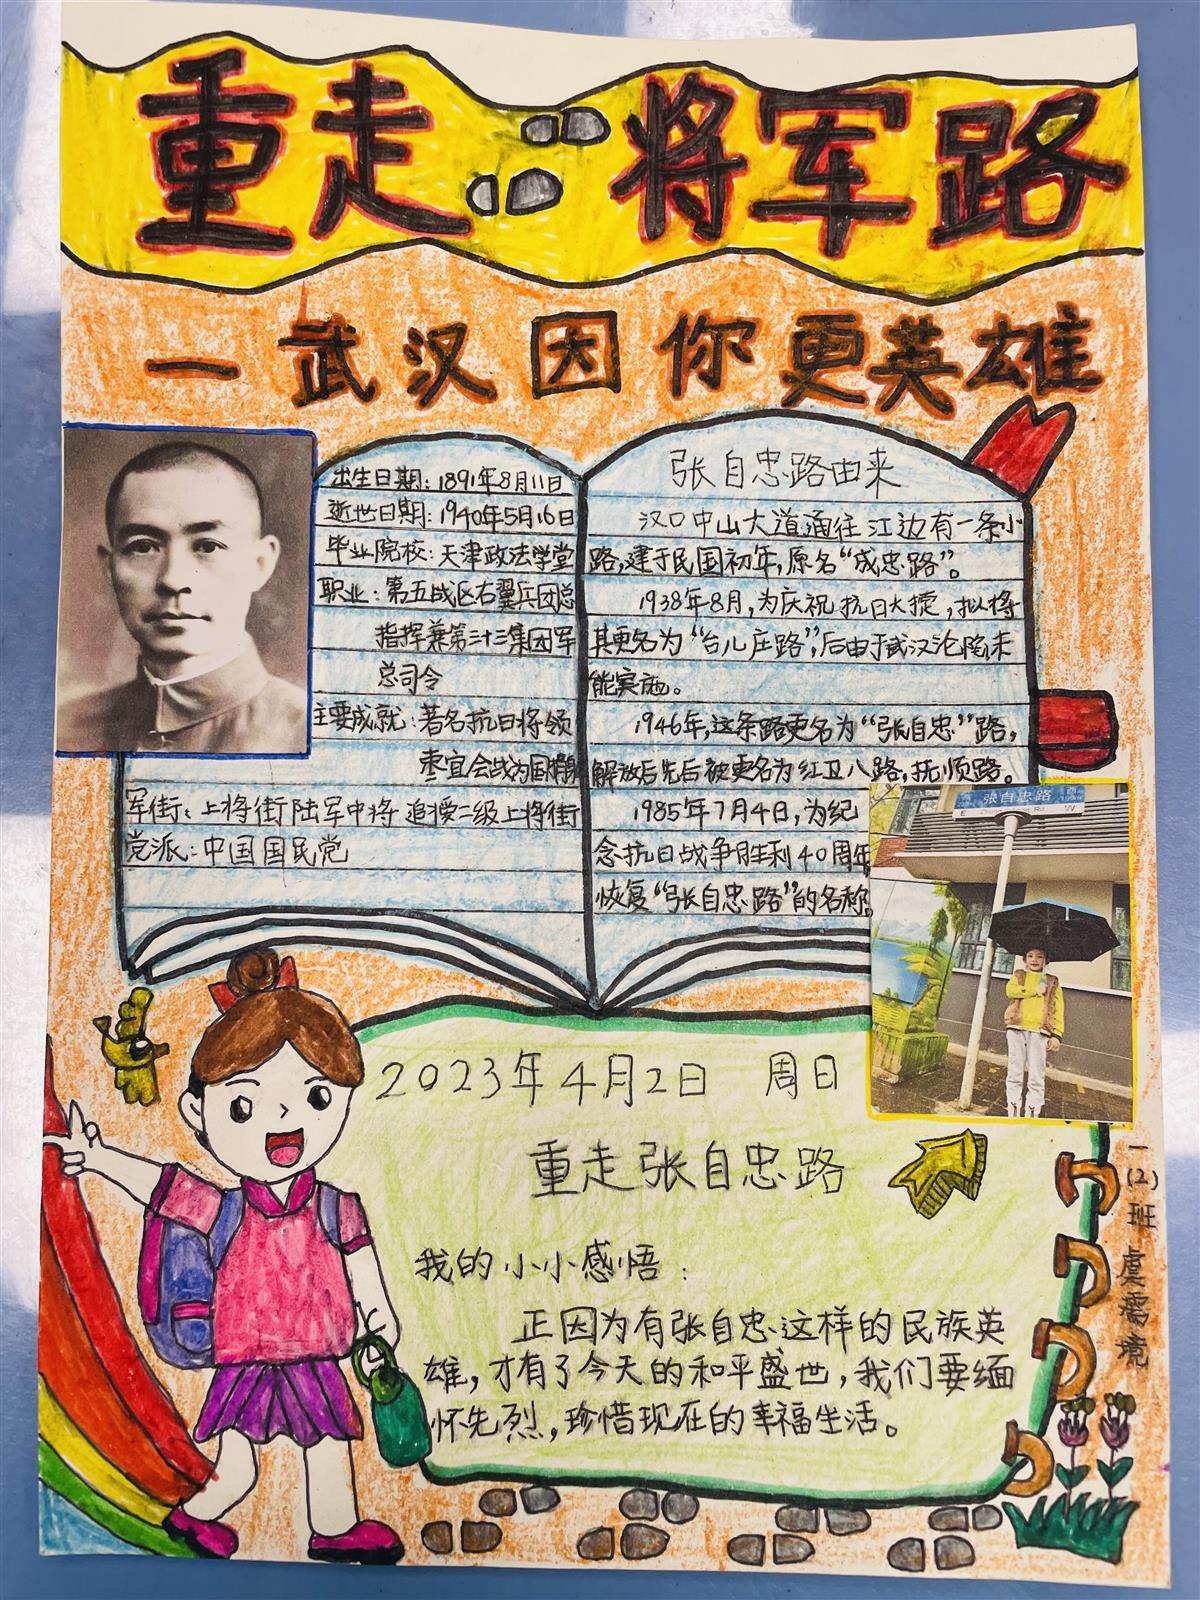 重走将军路
一武汉因你更英雄
出生日期：1891年8月11日
逝世日期：1940年5月16日
毕业院校：天津政法学堂
职业：第五战区右翼兵团总
指挥兼第三十三集团军
总司令
主要成就：著名抗日将领
枣宜会战为国捐躯
军衔：上将衔陆军中将 追授二级上将衔
党派：中国国民党
张自忠路由来
汉口中山大道通往江边有一条小
路，建于民国初年，原名“成忠路”。
1938年8月，为庆祝抗日大捷，拟将
其更名为“台儿庄路”，后由于武汉沦陷未
能实施。
1946年，这条路更名为“张自忠”路，
解放后先后被更名为红卫八路，抚顺路。
1985年7月4日，为纪
念抗日战争胜利40周年
恢复“张自忠路”的名称。
张自忠路
E
W
2023年4月2日 周日
重走张自忠路
我的小小感悟：
正因为有张自忠这样的民族英
雄，才有了今天的和平盛世，我们要缅
怀先烈，珍惜现在的幸福生活。
一(2)班 虞霈境